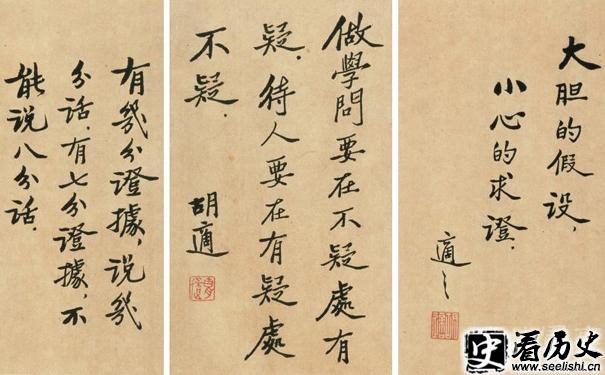 大胆的假设，
小心的求證．
適之
做學問要在不疑處有
疑．待人要在有疑處
不疑．
胡適
有幾分證據，說幾
分話．有七分證據，不
能说八分話．
史 看历史
www.seelishi.cn